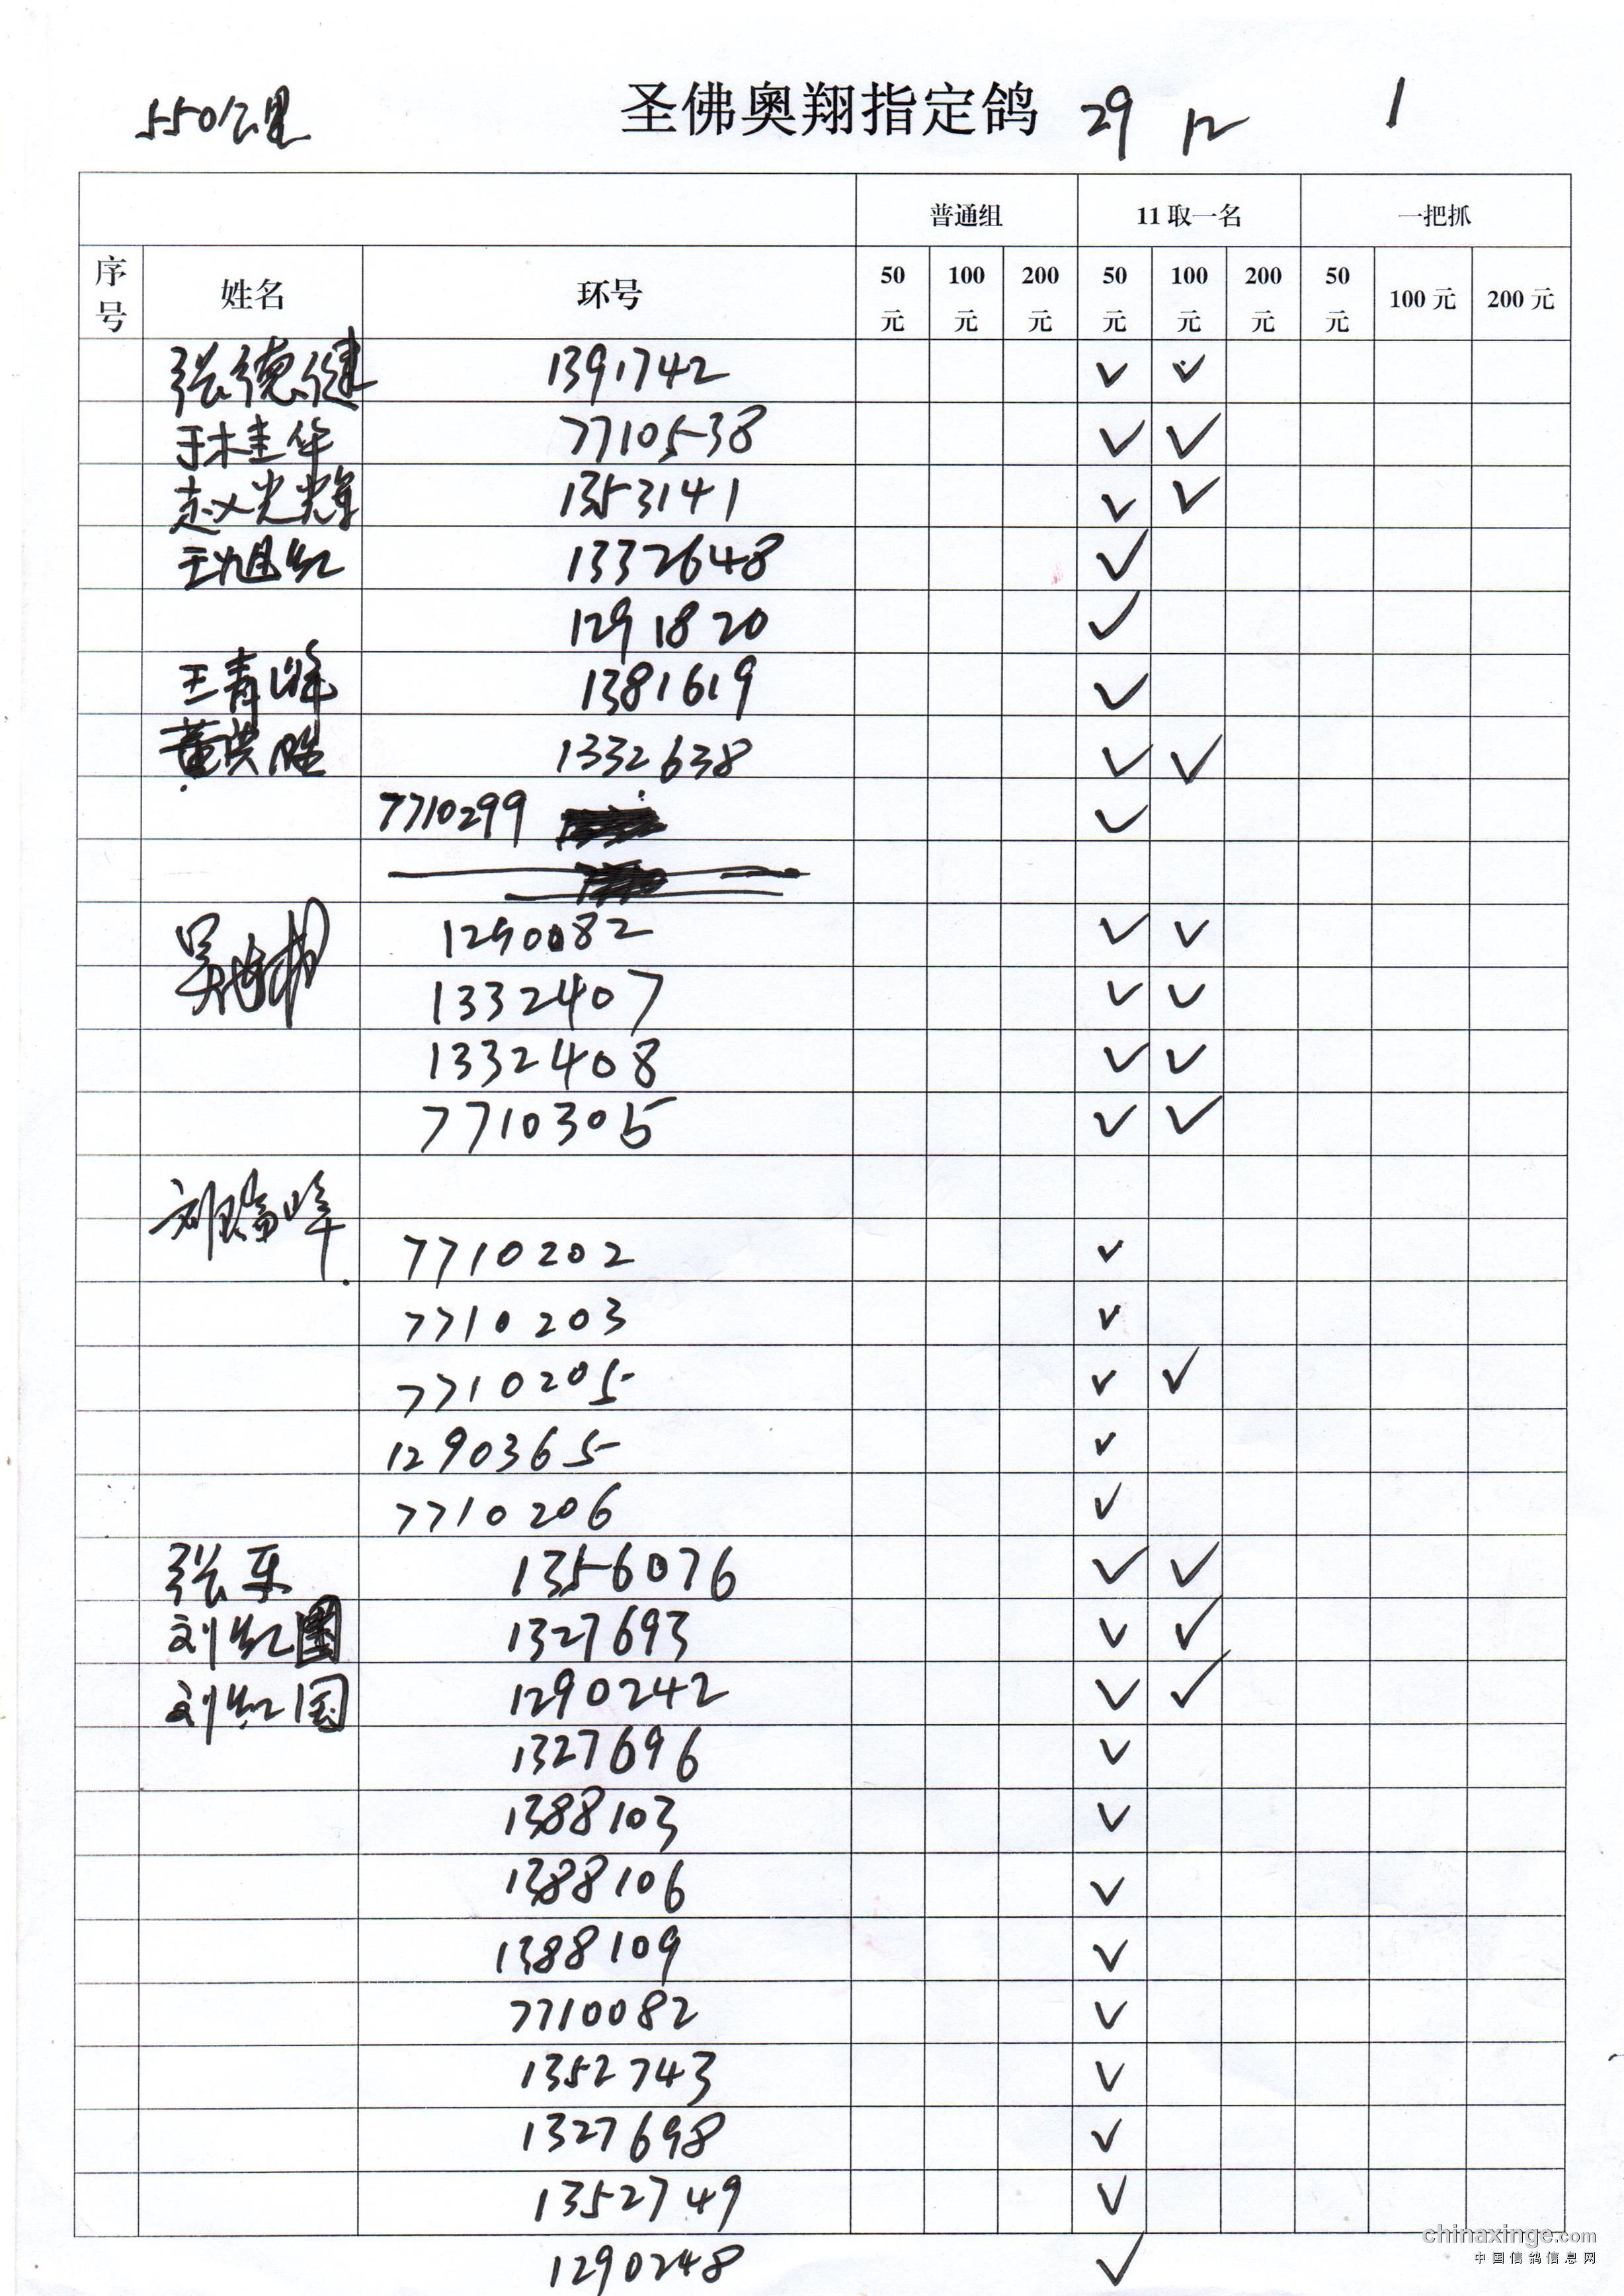 550公里 圣佛奥翔指定鸽 29 12 1
普通组 11取一名 一把抓
序号 姓名 环号 50元 100元 200元 50元 100元 200元 50元 100元 200元
张德健 1391742 ✓ ✓
于桂华 7710538 ✓ ✓
赵光辉 1353141 ✓ ✓
王旭红 1332648 ✓
1291820 ✓
王青峰 1381619 ✓
董洪胜 1332638 ✓ ✓
7710299 ✓
1290082 ✓ ✓
吴 1332407 ✓ ✓
1332408 ✓ ✓
7710305 ✓ ✓
刘瑞峰
7710202 ✓
7710203 ✓
7710205 ✓ ✓
1290365 ✓
7710206 ✓
张乐 1356076 ✓ ✓
刘红国 1327693 ✓ ✓
刘红国 1290242 ✓ ✓
1327696 ✓
1388103 ✓
1388106 ✓
1388109 ✓
7710082 ✓
1352743 ✓
1327698 ✓
1352749 ✓
1290248 ✓
chinaxinge.com
中国信鸽信息网